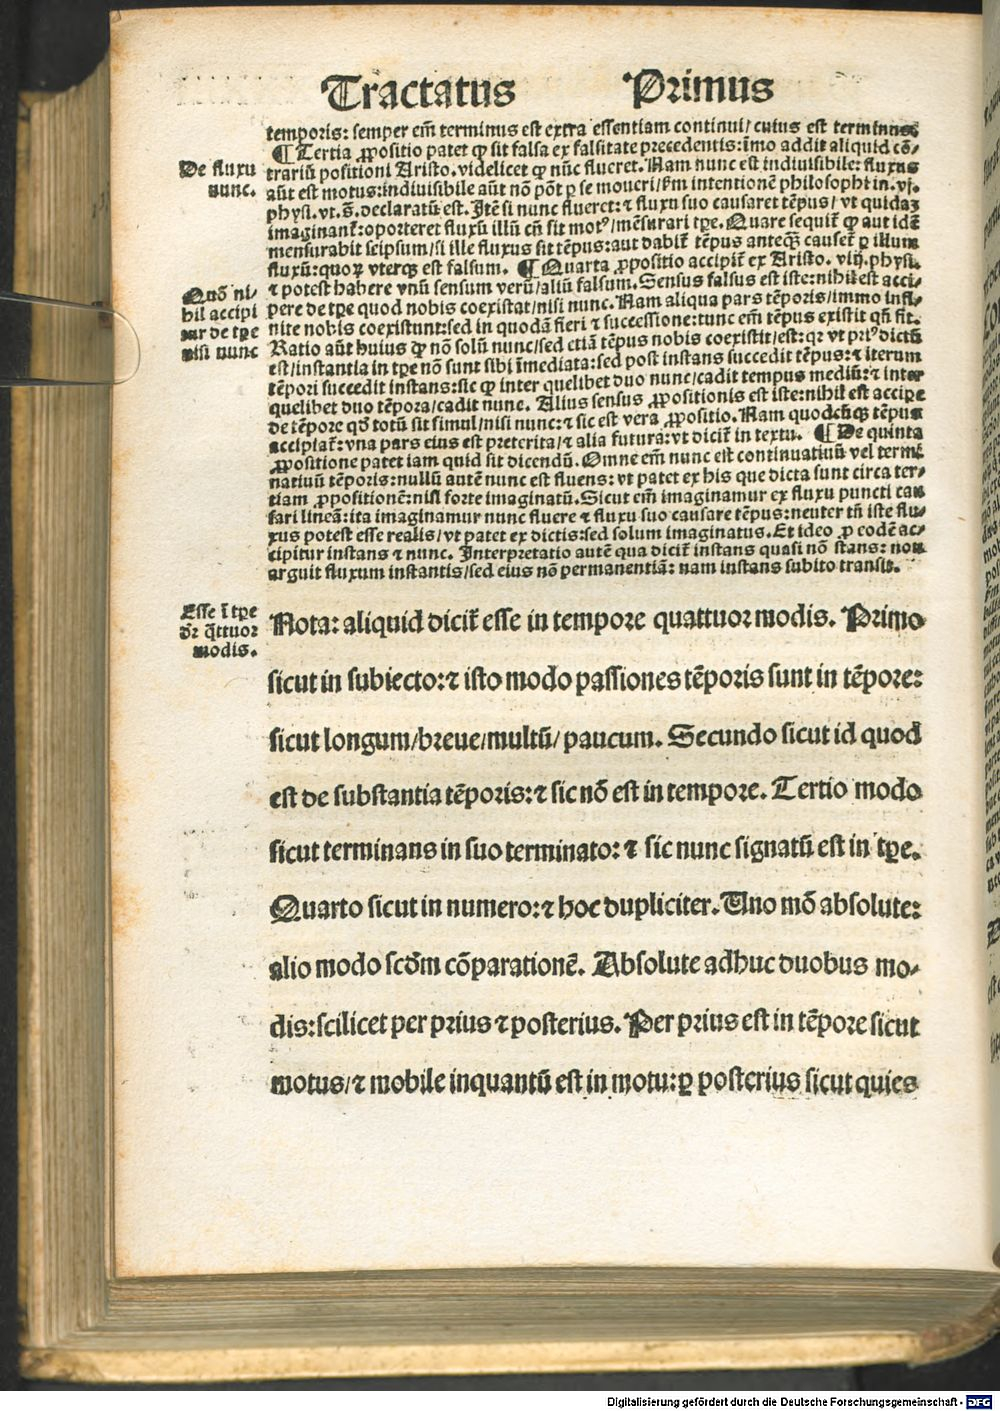 Tractatus Primus
temporis: semper em̄ terminus est extra essentiam continui/ cuius est terminus
¶ Tertia ꝓpositio patet ꝙ sit falsa ex falsitate precedentis: īmo addit aliquid cō-
De fluxu
nunc.
trariū positioni Aristo. videlicet ꝙ nūc flueret. Nam nunc est indiuisibile: fluxus
aūt est motus: indiuisibile aūt nō pōt ꝑ se moueri/ ẜm intentionē philosophi in .vj.
physi. vt .s̄. declaratū est. Itē si nunc flueret: ⁊ fluxu suo causaret tēpus/ vt quidaꝫ
imaginant᷑: oporteret fluxū illū cū sit motꝰ/ mēsurari tꝑe. Quare sequit᷑ ꝙ aut idē
mensurabit seipsum/ si ille fluxus sit tēpus: aut dabit᷑ tēpus anteqꝫ̄ causet᷑ ꝑ illum
fluxū: quoꝝ vterqꝫ est falsum. ¶ Quarta ꝓpositio accipit᷑ ex Aristo. viij. physi.
Quō ni-
hil accipi
tur de tꝑe
nisi nunc
⁊ potest habere vnū sensum verū/ aliū falsum. Sensus falsus est iste: nihil est acci-
pere de tꝑe quod nobis coexistat/ nisi nunc. Nam aliqua pars tēporis/ immo infi-
nite nobis coexistunt: sed in quodā fieri ⁊ successione: tunc em̄ tēpus existit qn̄ fit.
Ratio aūt huius ꝙ nō solū nunc/ sed etiā tēpus nobis coexistit/ est: qꝛ vt priꝰ dictū
est/ instantia in tꝑe nō sunt sibi īmediata: sed post instans succedit tēpus: ⁊ iterum
tēpori succedit instans: sic ꝙ inter quelibet duo nunc/ cadit tempus mediū: ⁊ inter
quelibet duo tēpora/ cadit nunc. Alius sensus ꝓpositionis est iste: nihil est accipe
de tēpore qd̄ totū sit simul/ nisi nunc: ⁊ sic est vera ꝓpositio. Nam quodcūqꝫ tēpus
accipiat᷑: vna pars eius est preterita/ ⁊ alia futura: vt dicit᷑ in textu. ¶ De quinta
ꝓpositione patet iam quid sit dicendū. Omne em̄ nunc est continuatiuū vel termi
natiuū tēporis: nullū autē nunc est fluens: vt patet ex his que dicta sunt circa ter-
tiam ꝓpositionē: nisi forte imaginatū. Sicut em̄ imaginamur ex fluxu puncti cau
sari lineā: ita imaginamur nunc fluere ⁊ fluxu suo causare tēpus: neuter tn̄ iste flu-
xus potest esse realis/ vt patet ex dictis: sed solum imaginatus. Et ideo ꝓ eodē ac-
cipitur instans ⁊ nunc. Interpretatio autē qua dicit᷑ instans quasi nō stans: non
arguit fluxum instantis/ sed eius nō permanentiā: nam instans subito transit.
Esse ī tꝑe
dꝛ q̄ttuor
modis.
Nota: aliquid dicit᷑ esse in tempore quattuor modis. Primo
sicut in subiecto: ⁊ isto modo passiones tēporis sunt in tēpore:
sicut longum/ breue/ multū/ paucum. Secundo sicut id quod
est de substantia tēporis: ⁊ sic nō est in tempore. Tertio modo
sicut terminans in suo terminato: ⁊ sic nunc signatū est in tꝑe.
Quarto sicut in numero: ⁊ hoc dupliciter. Uno mō absolute:
alio modo scd̄m cōparationē. Absolute adhuc duobus mo-
dis: scilicet per prius ⁊ posterius. Per prius est in tēpore sicut
motus/ ⁊ mobile inquantū est in motu: ꝑ posterius sicut quies
Digitalisierung gefördert durch die Deutsche Forschungsgemeinschaft - DFG